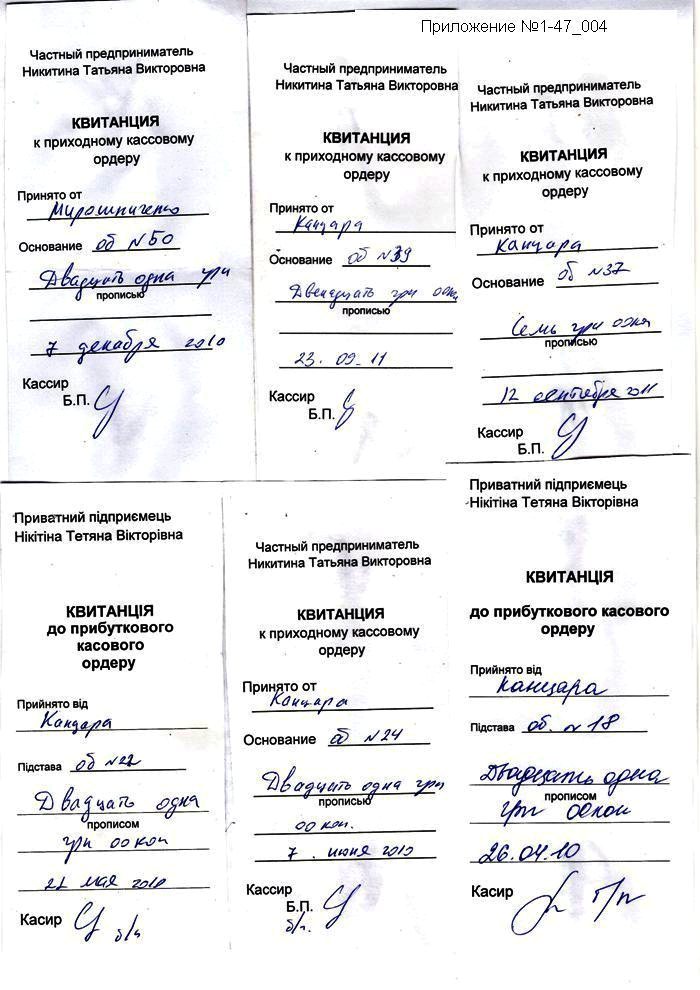 Приложение №1-47_004
Частный предприниматель
Никитина Татьяна Викторовна
КВИТАНЦИЯ
к приходному кассовому
ордеру
Принято от
Мирошниченко
Основание об №50
Двадцать одна грн
прописью
7 декабря 2010
Кассир
Б.П.
Частный предприниматель
Никитина Татьяна Викторовна
КВИТАНЦИЯ
к приходному кассовому
ордеру
Принято от
Канцара
Основание об №39
Двенадцать грн 00коп
прописью
23.09.11
Кассир
Б.П.
Частный предприниматель
Никитина Татьяна Викторовна
КВИТАНЦИЯ
к приходному кассовому
ордеру
Принято от
Канцара
Основание об №37
Семь грн 00коп
прописью
12 сентября 2011
Кассир
Б.П.
Приватний підприємець
Нікітіна Тетяна Вікторівна
КВИТАНЦІЯ
до прибуткового
касового
ордеру
Прийнято від
Канцара
Підстава об №22
Двадцать одна
прописом
грн 00 коп
21 мая 2010
Касир
б/п
Частный предприниматель
Никитина Татьяна Викторовна
КВИТАНЦИЯ
к приходному кассовому
ордеру
Принято от
Канцара
Основание об №24
Двадцать одна грн
прописью
00 коп.
7 . июня 2010
Кассир
Б.П.
б/п.
Приватний підприємець
Нікітіна Тетяна Вікторівна
КВИТАНЦІЯ
до прибуткового касового
ордеру
Прийнято від
Канцара
Підстава об. №18
Двадцать одна
прописом
грн 00коп
26.04.10
Касир
б/п